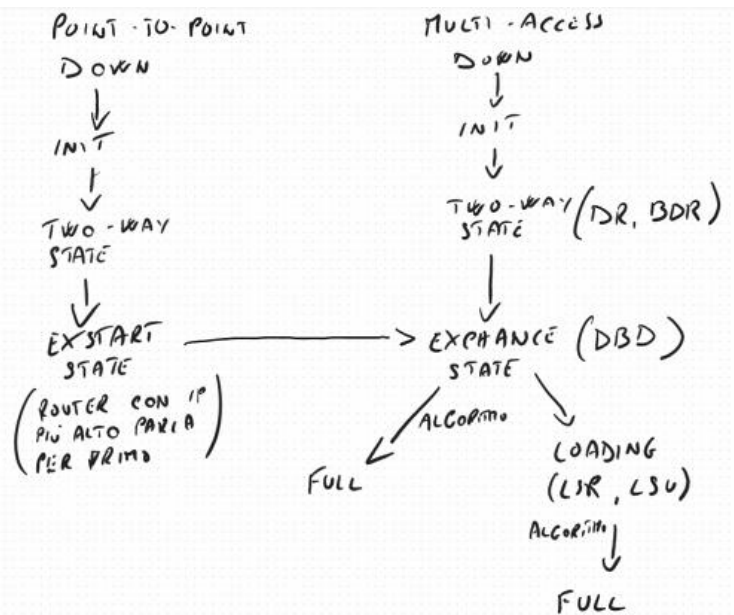 POINT-TO-POINT
DOWN
INIT
TWO-WAY
STATE
EXSTART
STATE
(ROUTER CON IP
PIÙ ALTO PARLA
PER PRIMO)
MULTI-ACCESS
DOWN
INIT
TWO-WAY (DR, BDR)
STATE
EXPHANCE (DBD)
STATE
ALGORITMO
FULL
LOADING
(LSR, LSU)
ALGORITMO
FULL